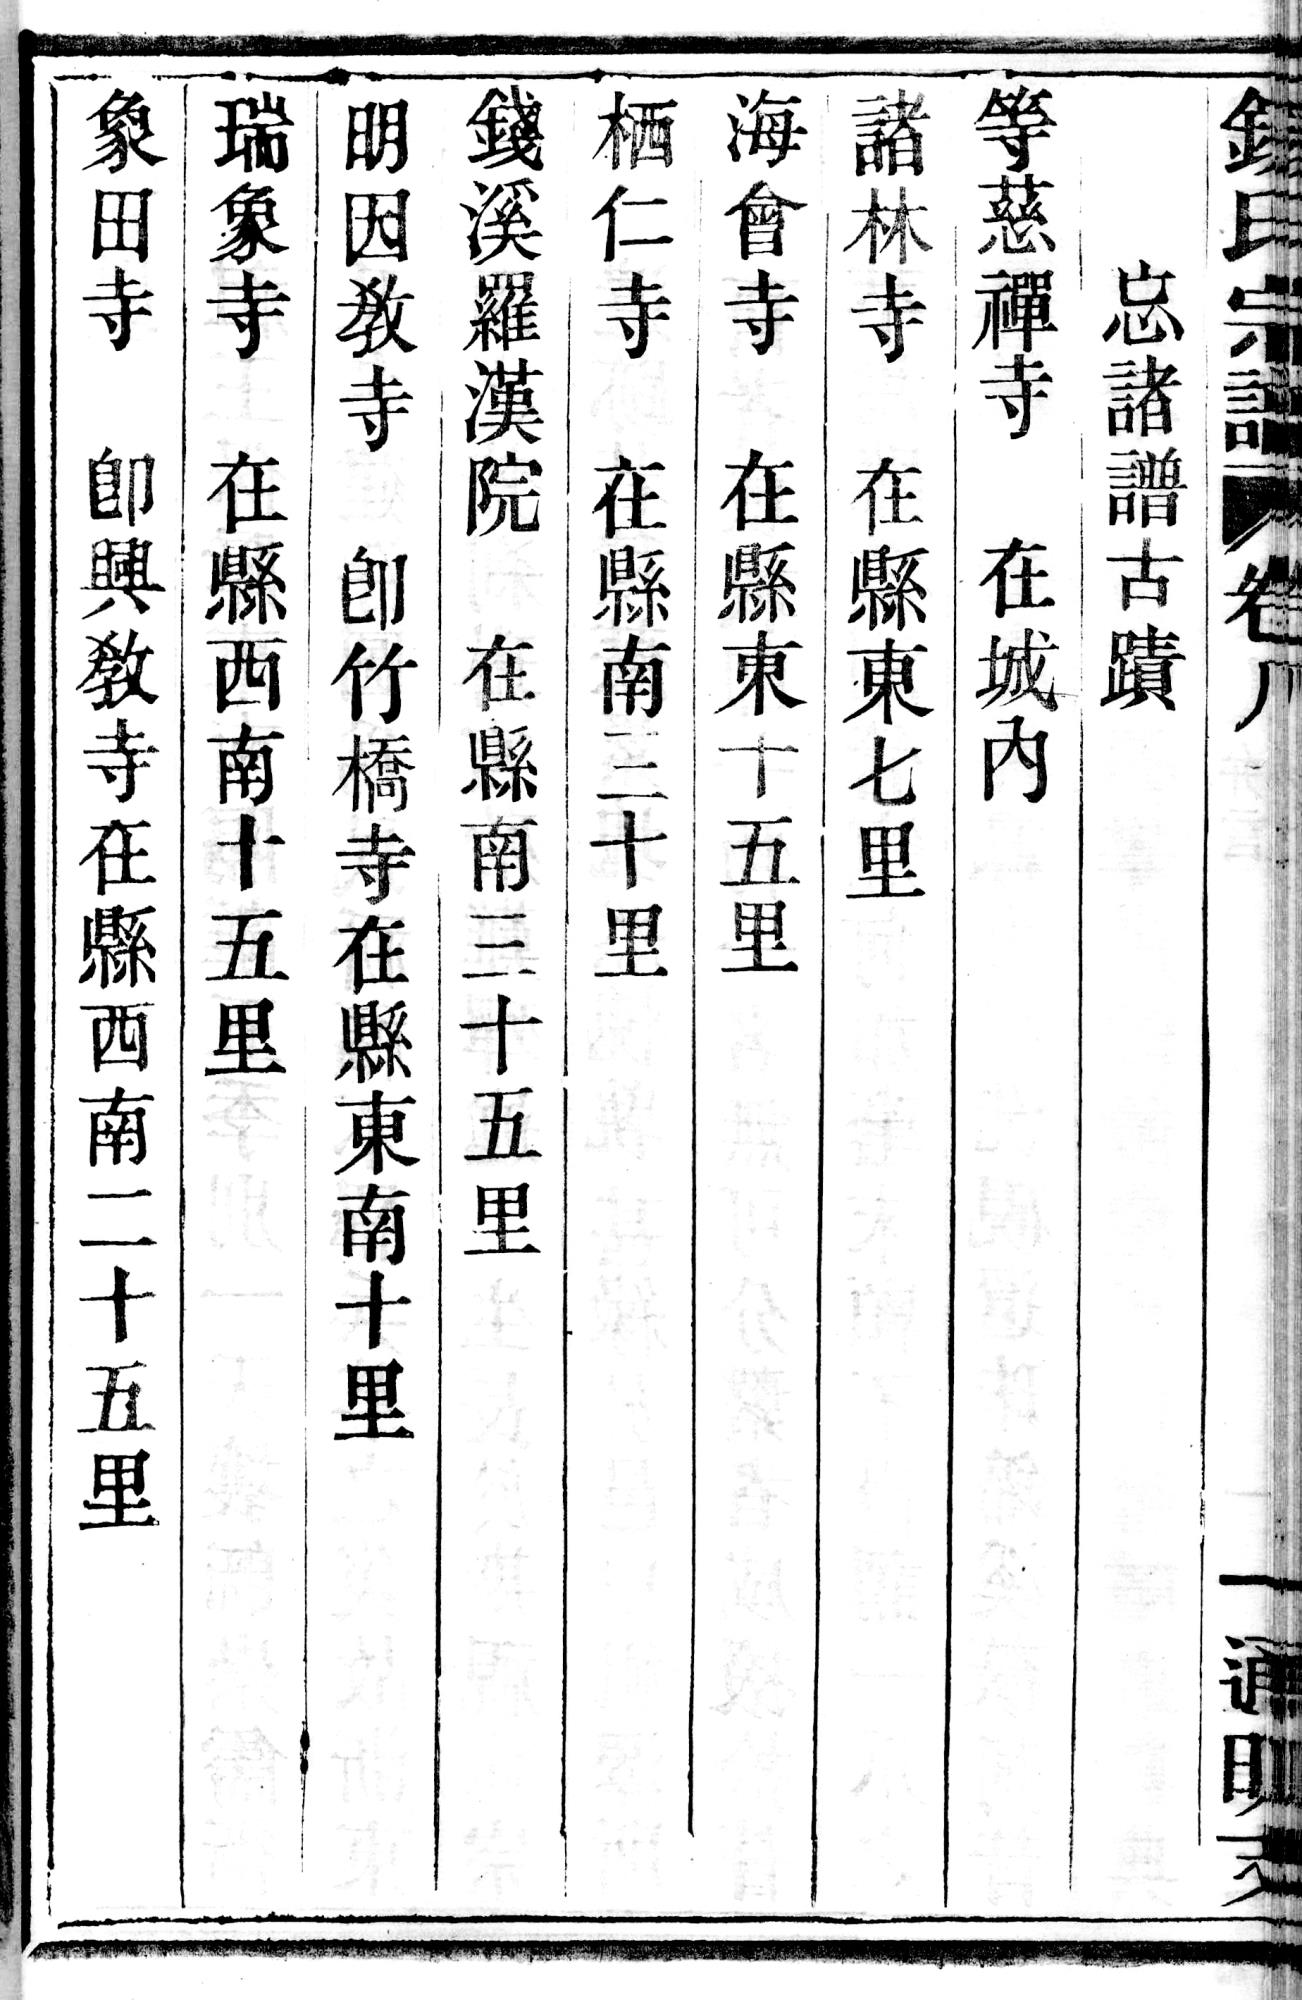 錢氏宗譜 卷八 一 通明支
忘諸譜古蹟
等慈禪寺 在城內
諸林寺 在縣東七里
海會寺 在縣東十五里
栖仁寺 在縣南三十里
錢溪羅漢院 在縣南三十五里
明因教寺 卽竹橋寺在縣東南十里
瑞象寺 在縣西南十五里
象田寺 卽興教寺在縣西南二十五里